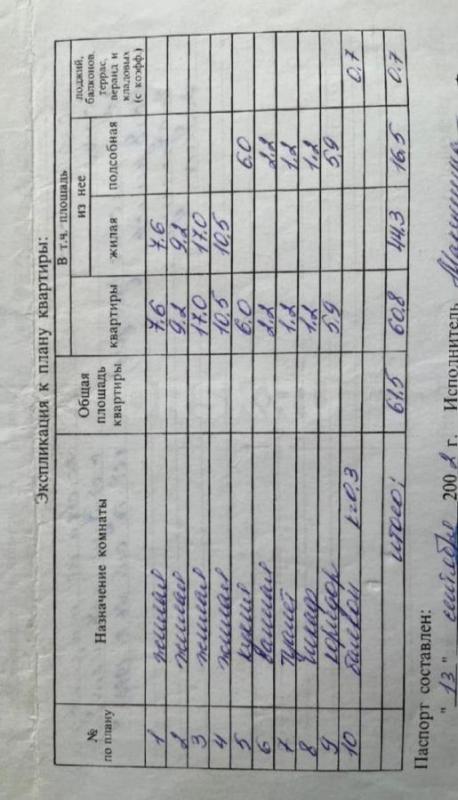 Экспликация к плану квартиры:
№ по плану | Назначение комнаты | Общая площадь квартиры | В т.ч. площадь квартиры | из нее жилая | подсобная | лоджий, балконов, террас, веранд и кладовых (с коэфф.)
1 жилая 7,6 7,6
2 жилая 9,2 9,2
3 жилая 17,0 17,0
4 жилая 10,5 10,5
5 кухня 6,0 6,0
6 ванная 2,2 2,2
7 туалет 1,2 1,2
8 шкаф 1,2 1,2
9 коридор 5,9 5,9
10 балкон к=0,3 0,7
итого: 61,5 60,8 44,3 16,5 0,7
Паспорт составлен:
" 13 " сентября 200 2 г. Исполнитель